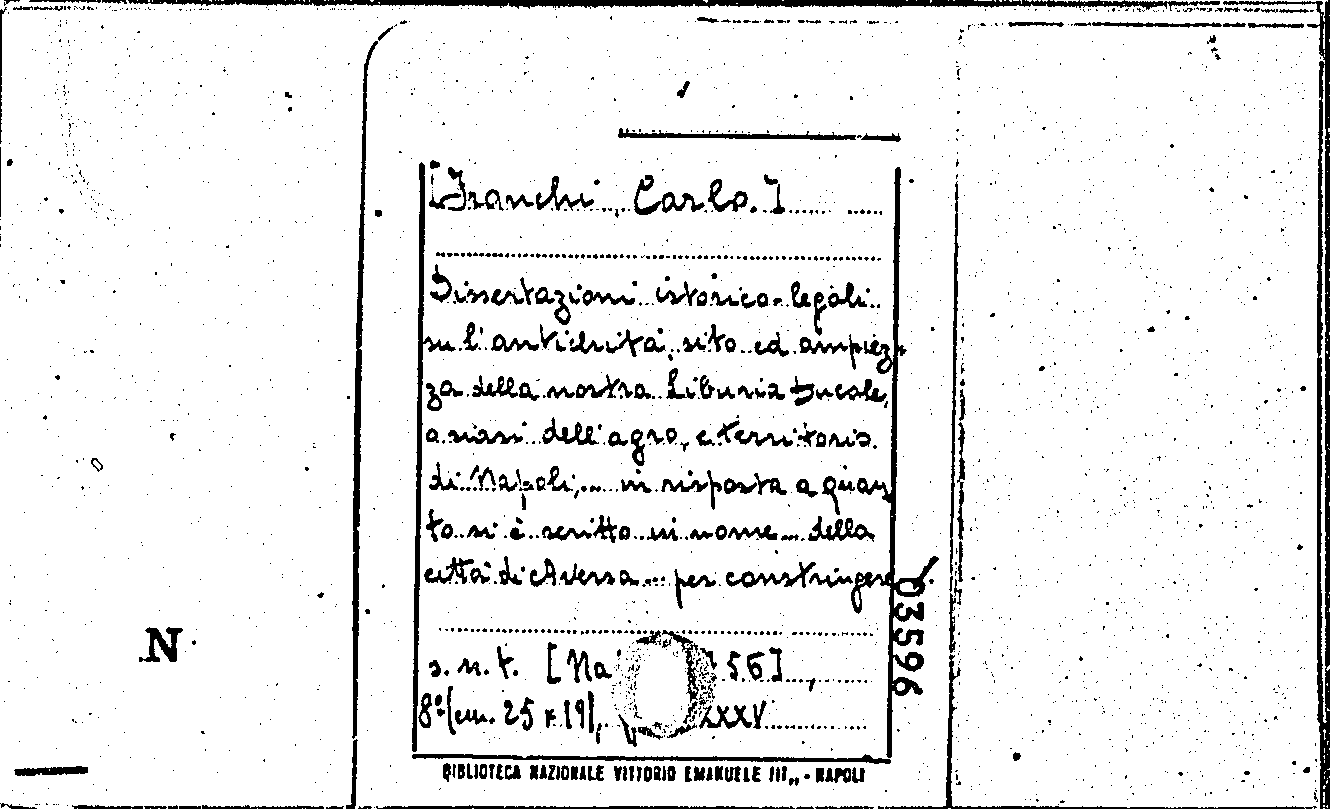 [Franchi, Carlo.]
Dissertazioni istorico-legali
su l'antichità, sito ed ampiez-
za della nostra Liburia Ducale,
o siasi dell'agro, e territorio
di Napoli,... in risposta a quan
to si è scritto in nome... della
città di Aversa... per constringere
03596
N
s. n. t. [Na 56],
8º (cm. 25 x 19), XXXV
BIBLIOTECA NAZIONALE VITTORIO EMANUELE III,, - NAPOLI